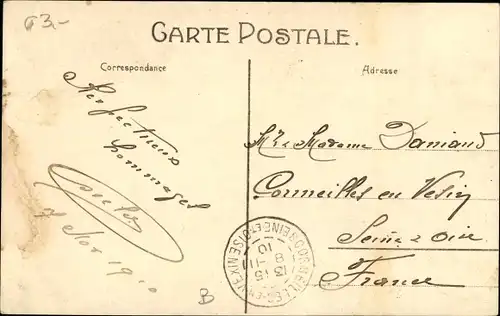 63.-
CARTE POSTALE.
Correspondance
Adresse
Respectueux
hommages
Nov 1910
Mr & Madame Damiand
Cormeilles en Vexin
Seine & Oise
France
B
CORMEILLES-EN-VEXIN SEINE-ET-OISE
13 15
8 - 11
10